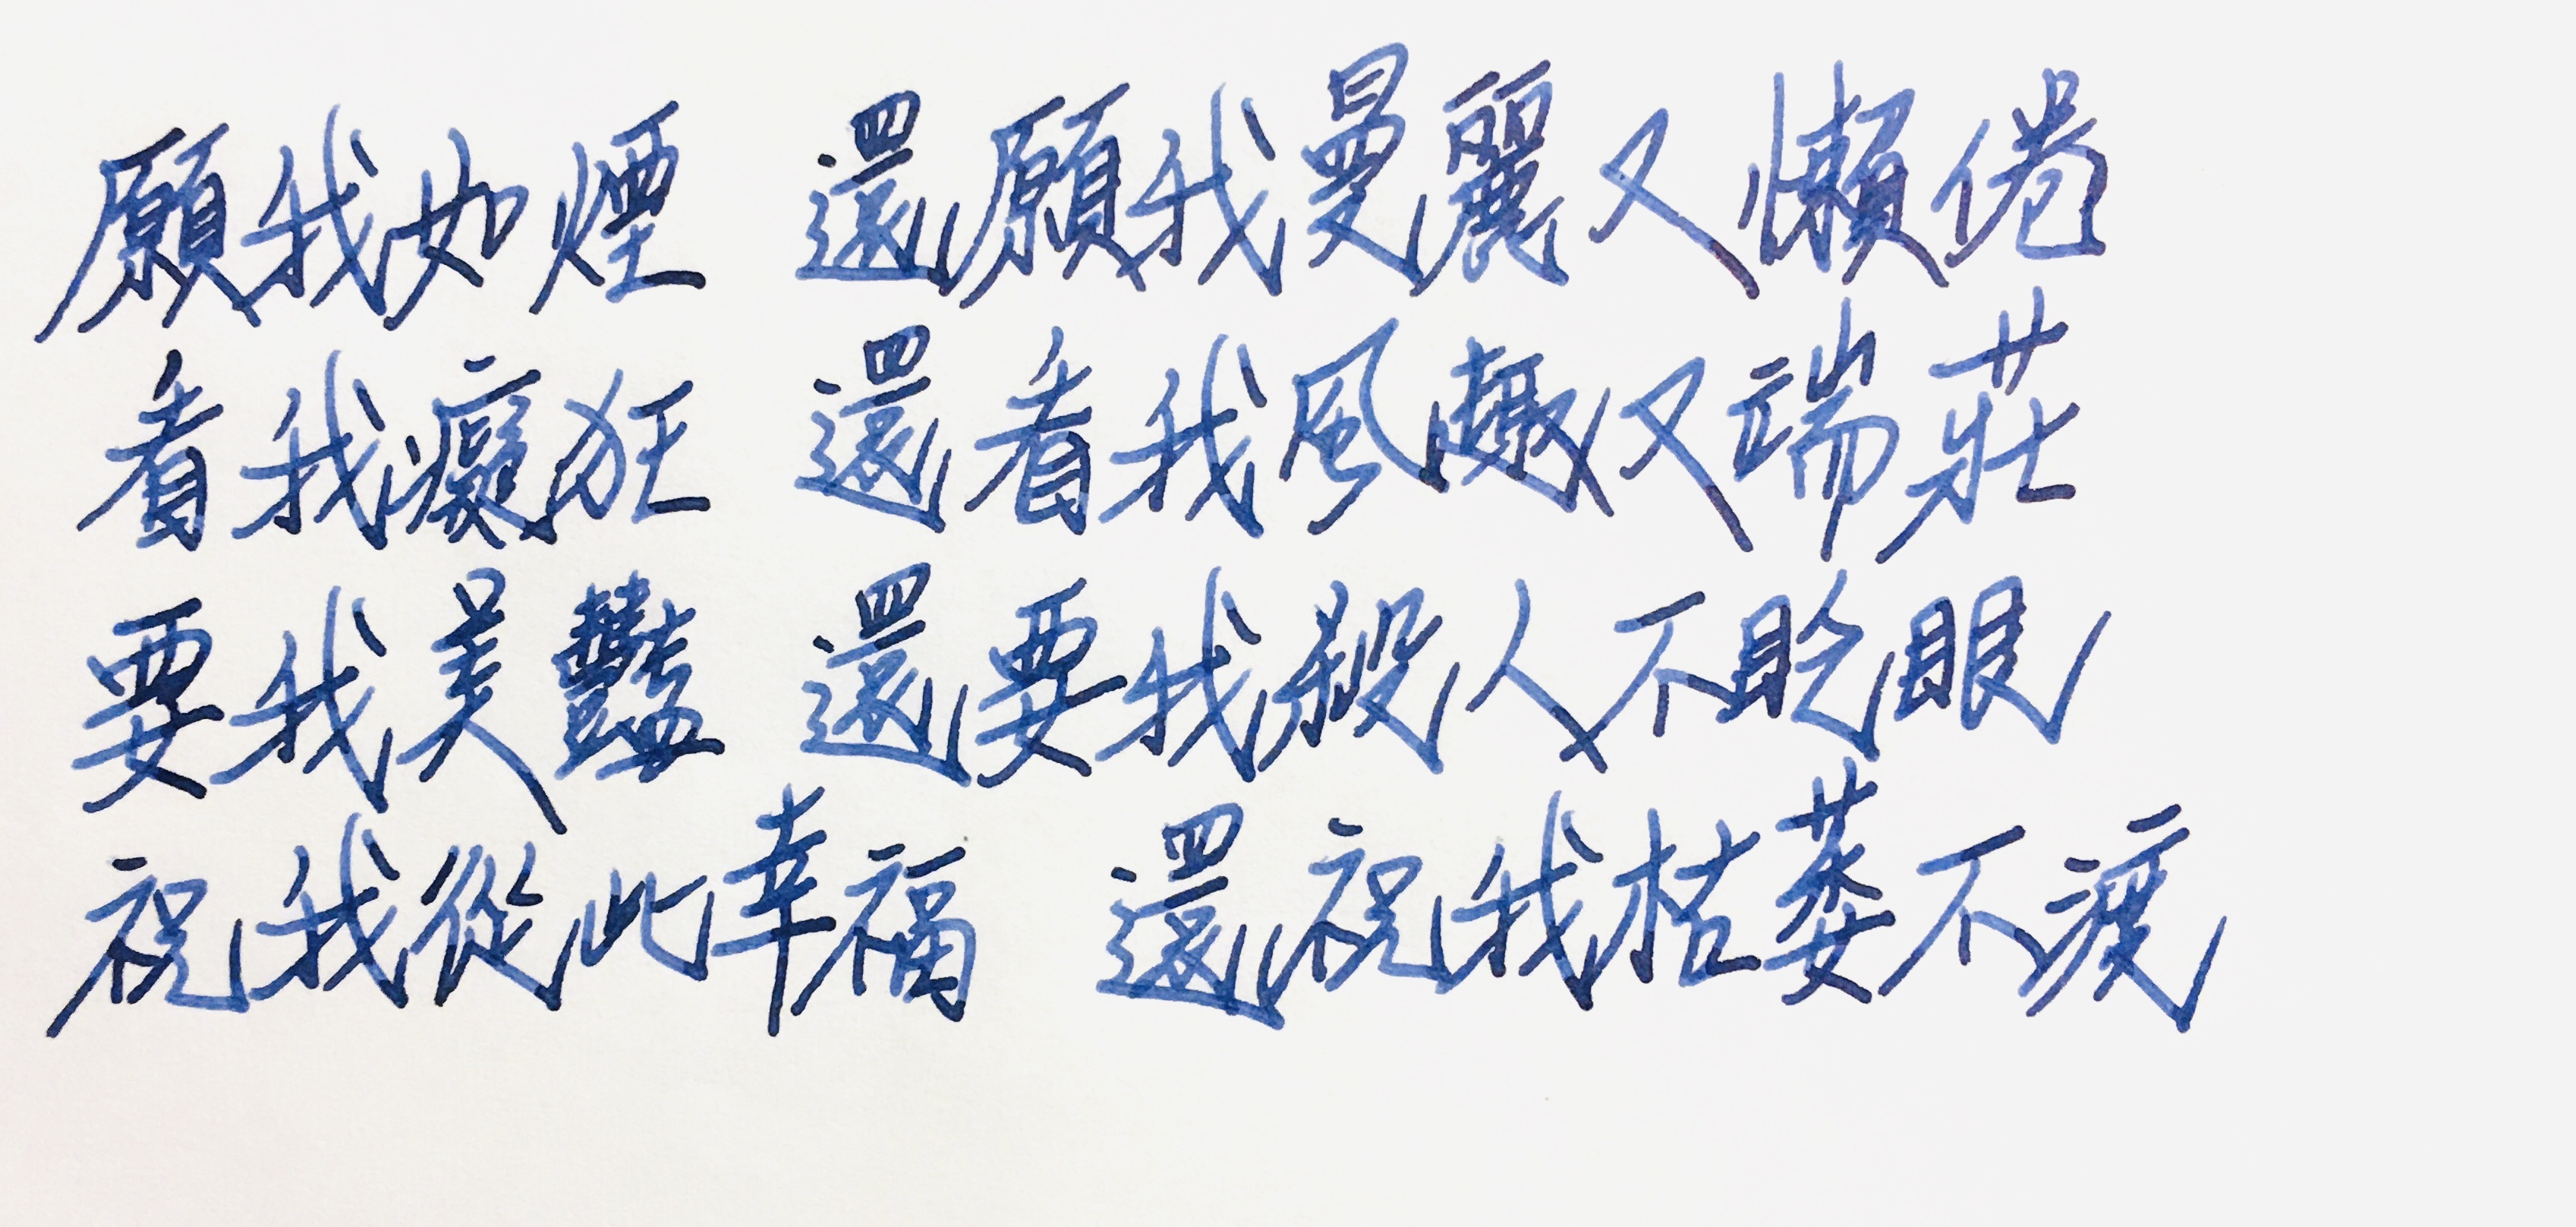 願我如煙 還願我曼麗又懶倦
看我癡狂 還看我風趣又端莊
要我美豔 還要我殺人不眨眼
祝我從此幸福 還祝我枯萎不渡